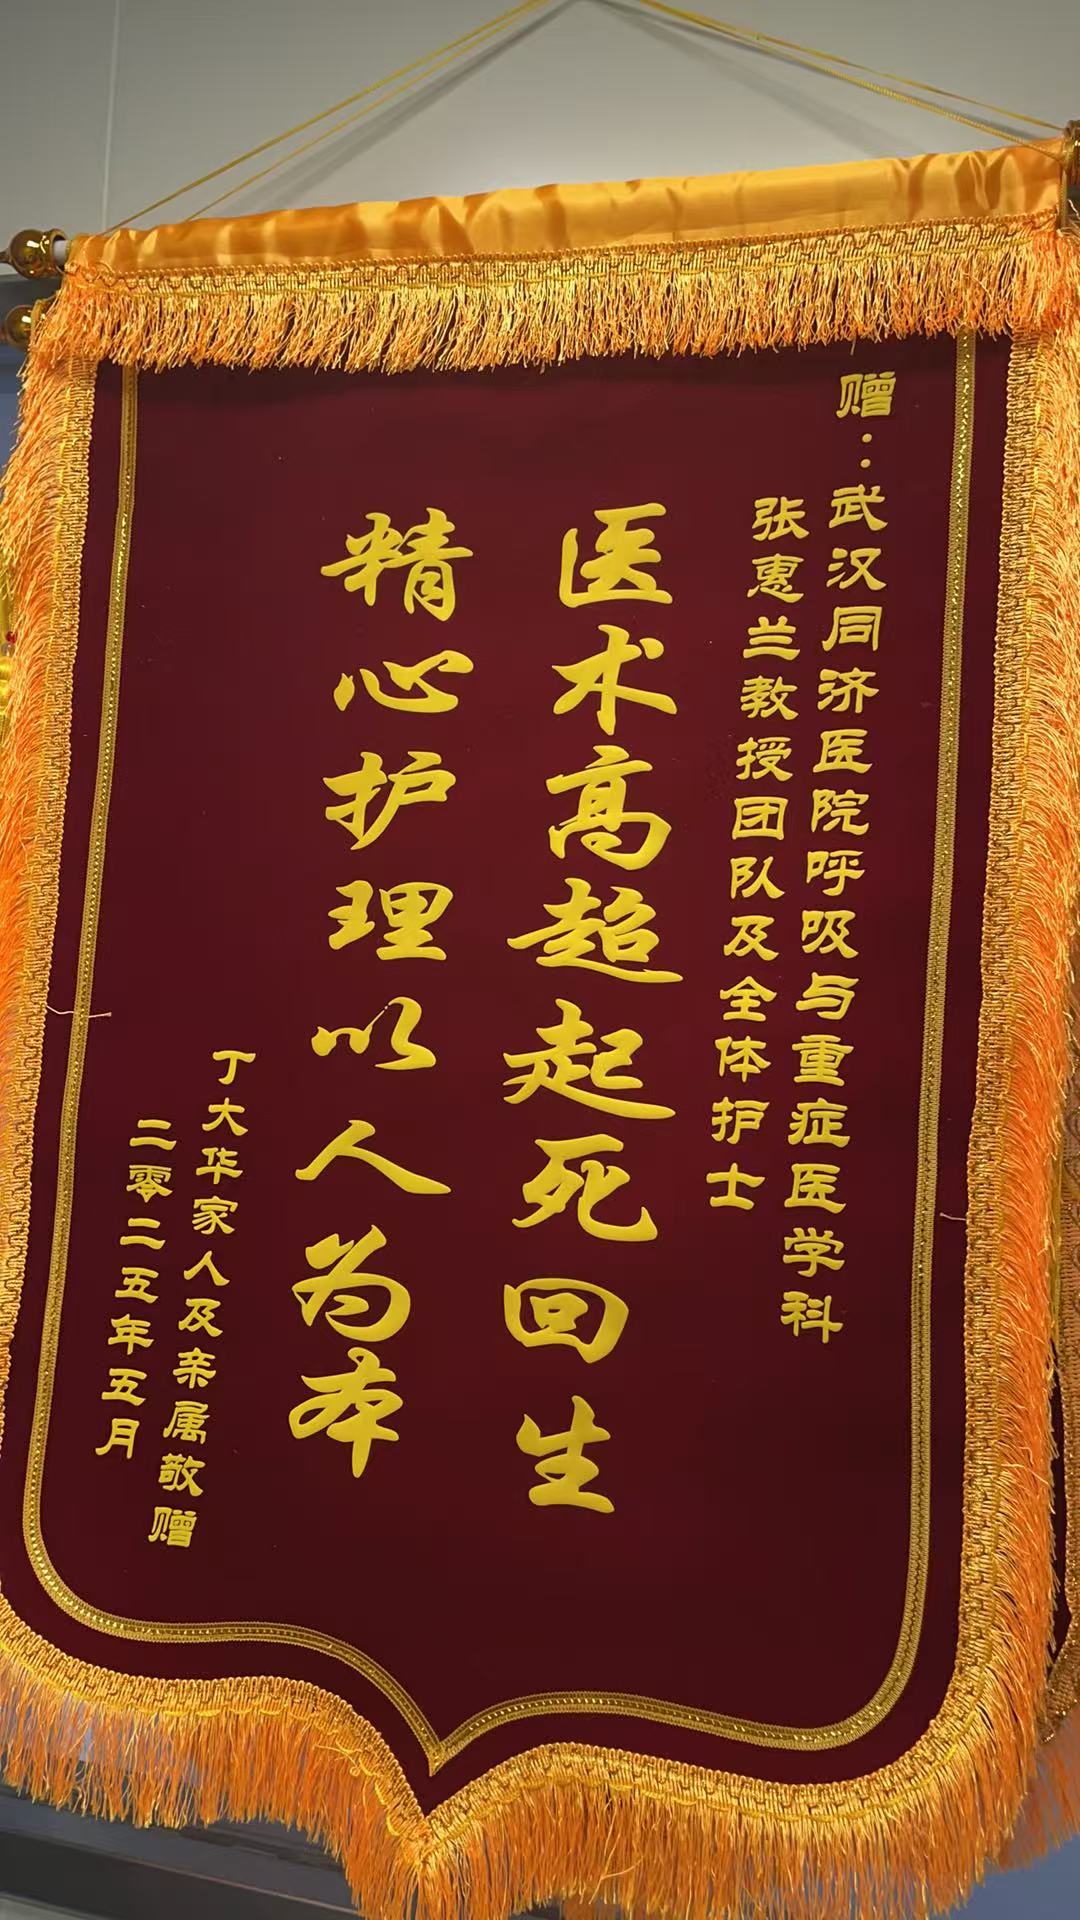 赠：武汉同济医院呼吸与重症医学科
张惠兰教授团队及全体护士
医术高超起死回生
精心护理以人为本
丁大华家人及亲属敬赠
二零二五年五月